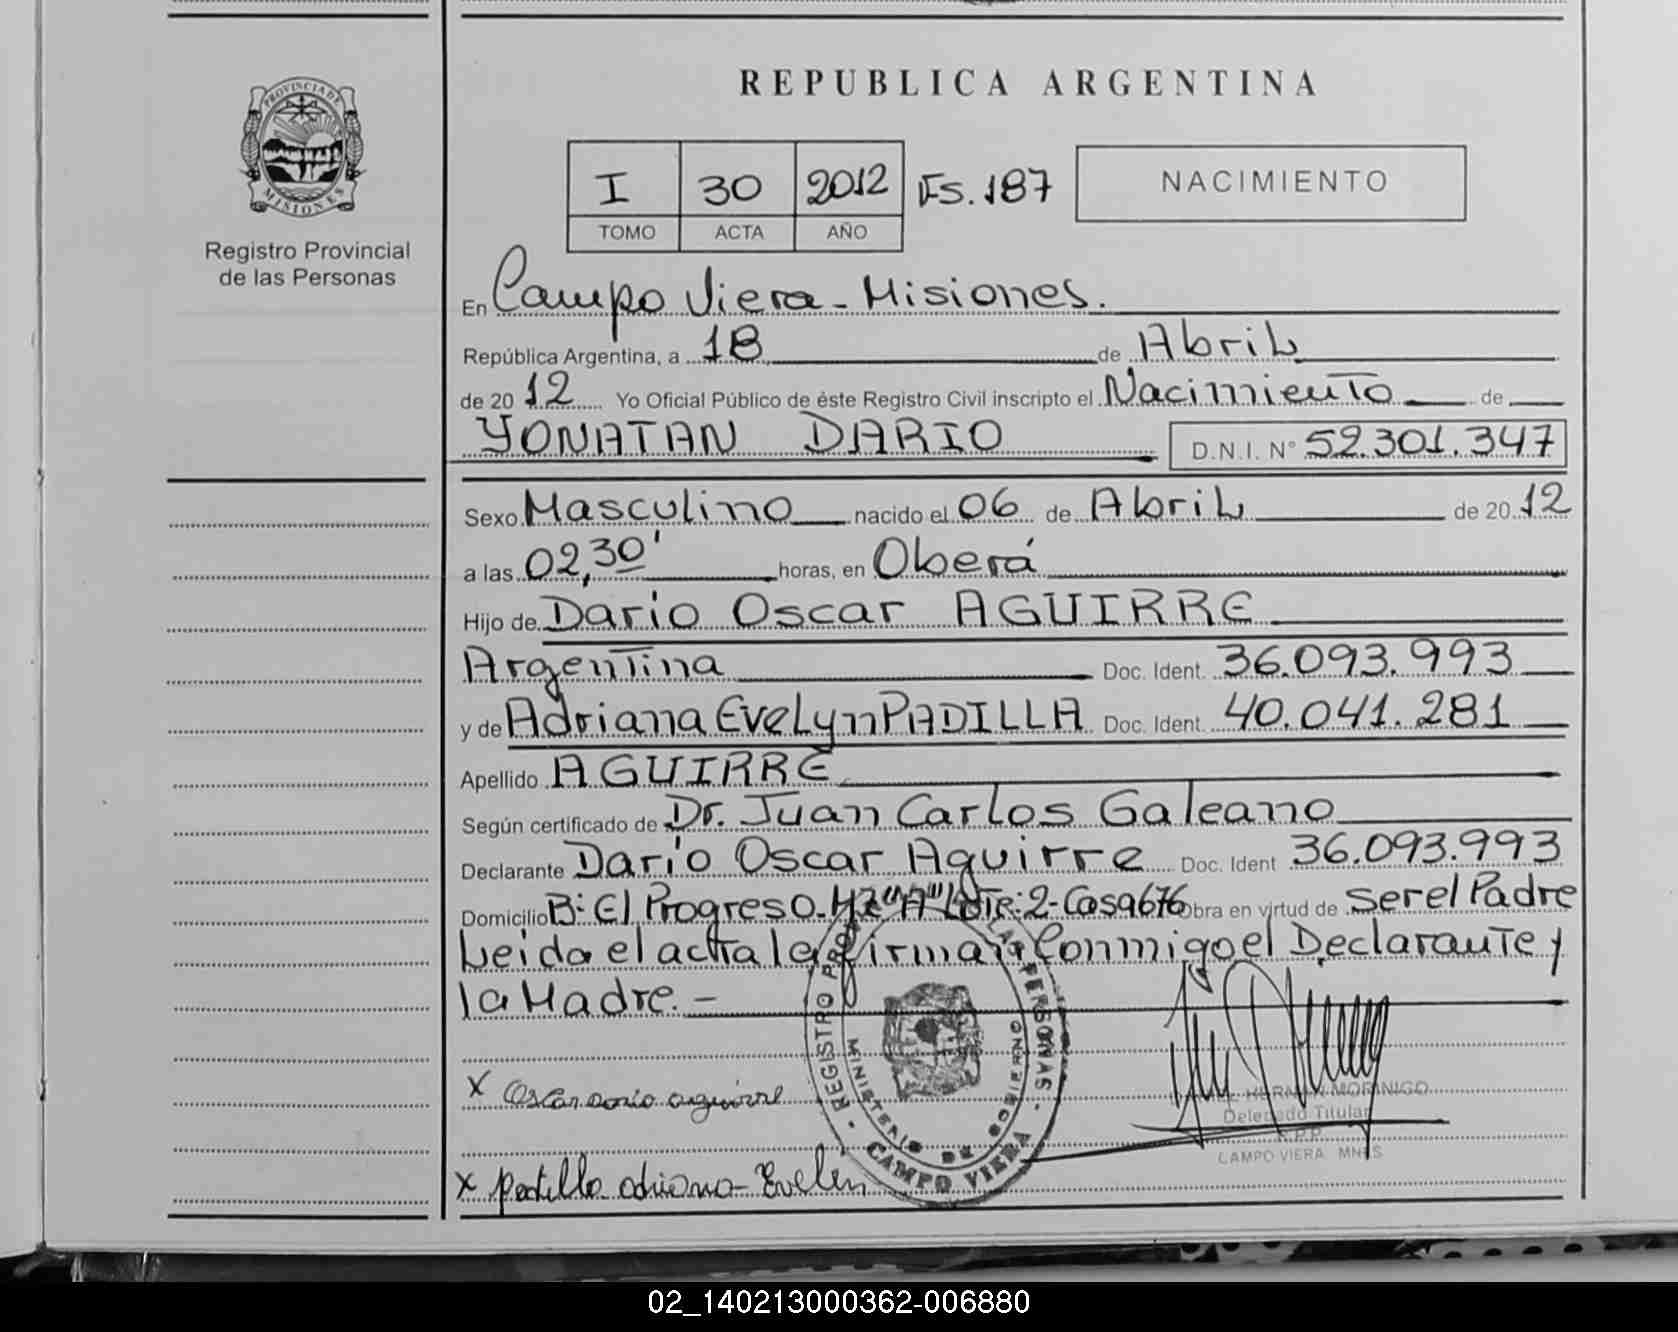 PROVINCIA DE
MISIONES
Registro Provincial
de las Personas
REPUBLICA ARGENTINA
I 30 2012 Fs. 187 NACIMIENTO
TOMO ACTA AÑO
En Campo Viera - Misiones.
República Argentina, a 18 de Abril
de 20 12 Yo Oficial Público de éste Registro Civil inscripto el Nacimiento de
YONATAN DARIO D.N.I. N° 52.301.347
Sexo Masculino nacido el 06 de Abril de 20 12
a las 02,30' horas, en Oberá
Hijo de Dario Oscar AGUIRRE
Argentina Doc. Ident. 36.093.993
y de Adriana Evelyn PADILLA Doc. Ident. 40.041.281
Apellido AGUIRRE
Según certificado de Dr. Juan Carlos Galeano
Declarante Dario Oscar Aguirre Doc. Ident 36.093.993
Domicilio B: El Progreso-Mz "A" Lote: 2-Casa 676 Obra en virtud de Ser el Padre
Leida el acta la firman Conmigo el Declarante y
la Madre. -
REGISTRO PERSONAS
MINISTERIO DE GOBIERNO
CAMPO VIERA
X Oscar dario aguirre
HERNAN MORINIGO
Delegado Titular
R.P.P.
CAMPO VIERA MNES
X padilla adriana - Evelin
02_140213000362-006880